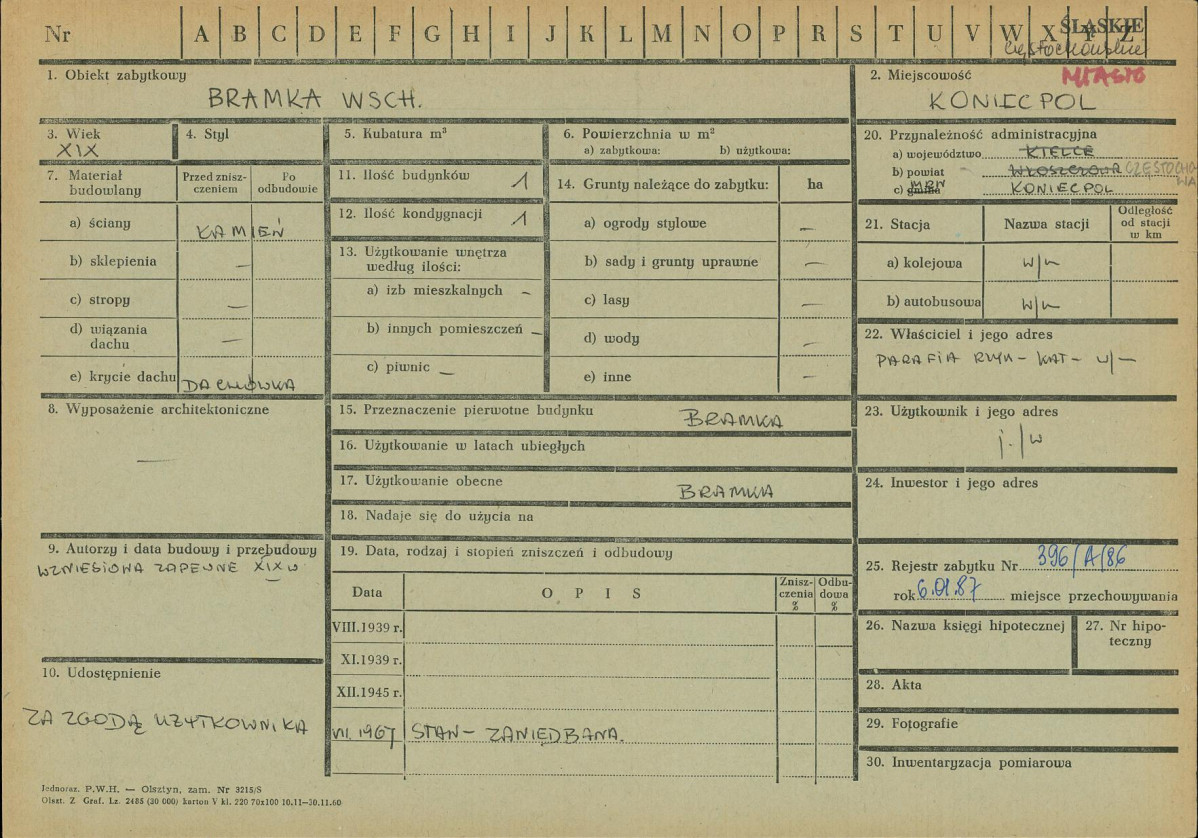 Nr A B C D E F G H I J K L M N O P R S T U V W X Y Z
ŚLĄSKIE
częstochowskie
MIASTO
1. Obiekt zabytkowy
BRAMKA WSCH.
2. Miejscowość
KONIECPOL
3. Wiek
XIX
4. Styl
5. Kubatura m³
6. Powierzchnia w m²
a) zabytkowa: b) użytkowa:
7. Materiał budowlany
Przed zniszczeniem
Po odbudowie
a) ściany KAMIEŃ
b) sklepienia —
c) stropy —
d) wiązania dachu —
e) krycie dachu DACHÓWKA
8. Wyposażenie architektoniczne
—
9. Autorzy i data budowy i przebudowy
WZNIESIONA ZAPEWNE XIX w
10. Udostępnienie
ZA ZGODĄ UŻYTKOWNIKA
11. Ilość budynków 1
12. Ilość kondygnacji 1
13. Użytkowanie wnętrza według ilości:
a) izb mieszkalnych –
b) innych pomieszczeń –
c) piwnic —
14. Grunty należące do zabytku: ha
a) ogrody stylowe —
b) sady i grunty uprawne —
c) lasy —
d) wody —
e) inne —
15. Przeznaczenie pierwotne budynku BRAMKA
16. Użytkowanie w latach ubiegłych
17. Użytkowanie obecne BRAMKA
18. Nadaje się do użycia na
19. Data, rodzaj i stopień zniszczeń i odbudowy
Data OPIS Zniszczenia % Odbudowa %
VIII.1939 r.
XI.1939 r.
XII.1945 r.
VII.1967 STAN – ZANIEDBANA.
20. Przynależność administracyjna
a) województwo KIELCE
b) powiat WŁOSZCZOWA CZĘSTOCHOWA
c) gmina MRN KONIECPOL
21. Stacja Nazwa stacji Odległość od stacji w km
a) kolejowa w/m
b) autobusowa w/m
22. Właściciel i jego adres
PARAFIA RZYM – KAT – w/—
23. Użytkownik i jego adres
j./w
24. Inwestor i jego adres
25. Rejestr zabytku Nr 396/A/86
rok 6.01.87 miejsce przechowywania
26. Nazwa księgi hipotecznej
27. Nr hipoteczny
28. Akta
29. Fotografie
30. Inwentaryzacja pomiarowa
Jednoraz. P.W.H. — Olsztyn, zam. Nr 3215/S
Olszt. Z. Graf. Lz. 2485 (30 000) karton V kl. 220 70x100 10.11—30.11.60